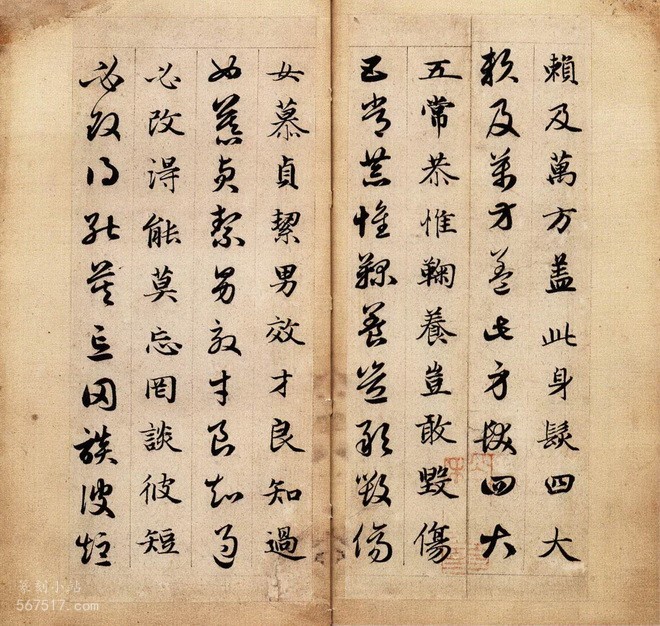 賴及萬方盖此身髮四大
賴及萬方盖此身髮四大
五常恭惟鞠養豈敢毀傷
五常恭惟鞠養豈敢毀傷
女慕貞絜男效才良知過
女慕貞絜男效才良知過
必改得能莫忘罔談彼短
必改得能莫忘罔談彼短
篆刻小站
567517.com